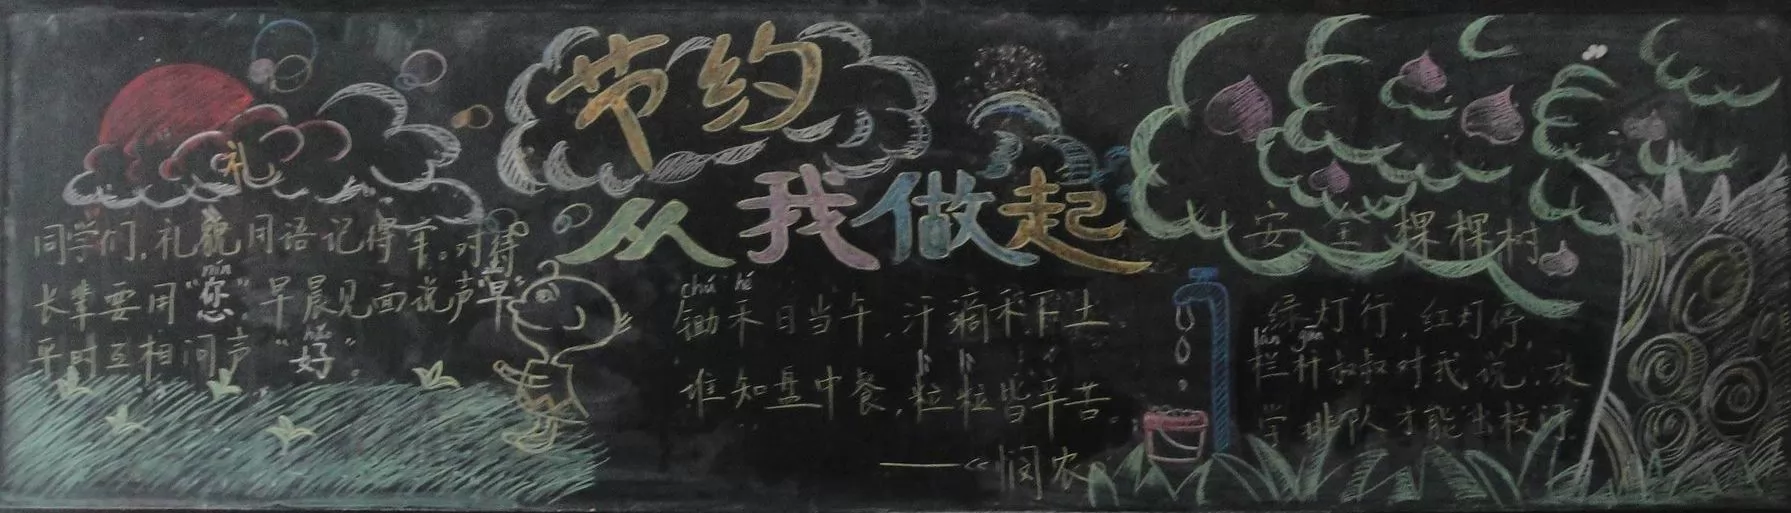 节约
从我做起
礼
同学们,礼貌用语记得牢。对待
nín
长辈要用“您”,早晨见面说声“早”
平时互相问声“好”。
chú hé
锄禾日当午,汗滴禾下土。
lì lì
谁知盘中餐,粒粒皆辛苦。
——《悯农
安全棵棵树
绿灯行,红灯停,
lán gān
栏杆叔叔对我说,放
学排队才能出校门.